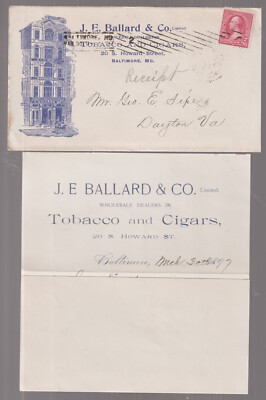 J. E. Ballard & Co. Limited
TOBACCO AND CIGARS,
20 S. Howard Street,
BALTIMORE, MD.
Receipt
Mr. Geo. E. Sipe
Dayton Va
J. E. BALLARD & CO. Limited
WHOLESALE DEALERS IN
Tobacco and Cigars,
20 S. HOWARD ST.
Baltimore, Mch 30 1897